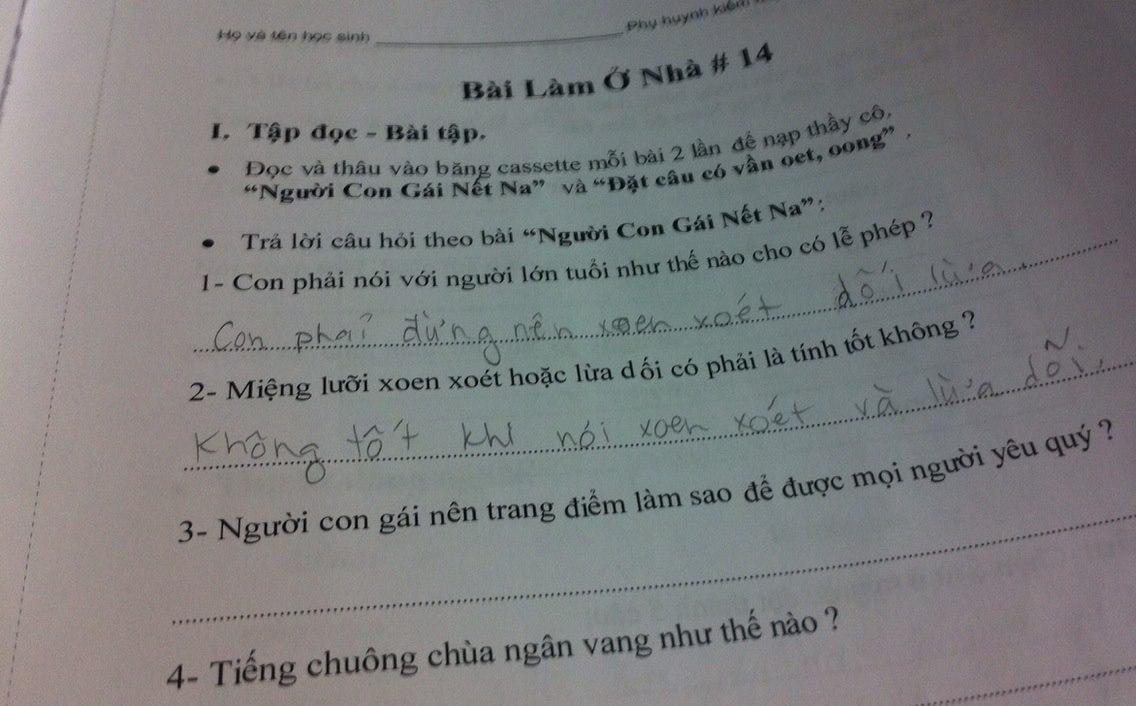 Họ và tên học sinh
Phụ huynh kiểm
Bài Làm Ở Nhà # 14
I. Tập đọc - Bài tập.
• Đọc và thâu vào băng cassette mỗi bài 2 lần để nạp thầy cô.
“Người Con Gái Nết Na” và “Đặt câu có vần oet, oong” .
• Trả lời câu hỏi theo bài “Người Con Gái Nết Na” :
1- Con phải nói với người lớn tuổi như thế nào cho có lễ phép ?
Con phải đừng nên xoen xoét dối lừa.
2- Miệng lưỡi xoen xoét hoặc lừa dối có phải là tính tốt không ?
Không tốt khi nói xoen xoét và lừa dỗi.
3- Người con gái nên trang điểm làm sao để được mọi người yêu quý ?
4- Tiếng chuông chùa ngân vang như thế nào ?